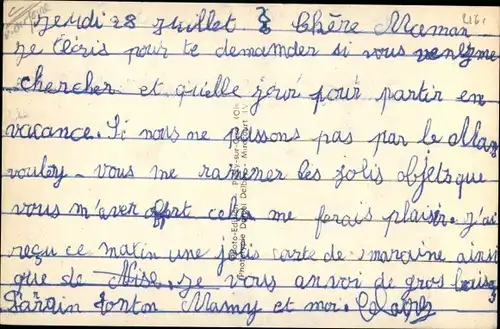 jeudi 28 juillet Chère Maman
je t'écris pour te demander si vous venez me
chercher et qu'elle jour pour partir en
vacance. Si nous ne passons pas par le
vous me ramener les jolis objets que
vous m'aver offert cela me ferais plaisir. j'ai
reçu ce matin une jolis carte de maraine ainsi
que de je vous anvoi de gros baisers
Parain tonton Mamy et moi.